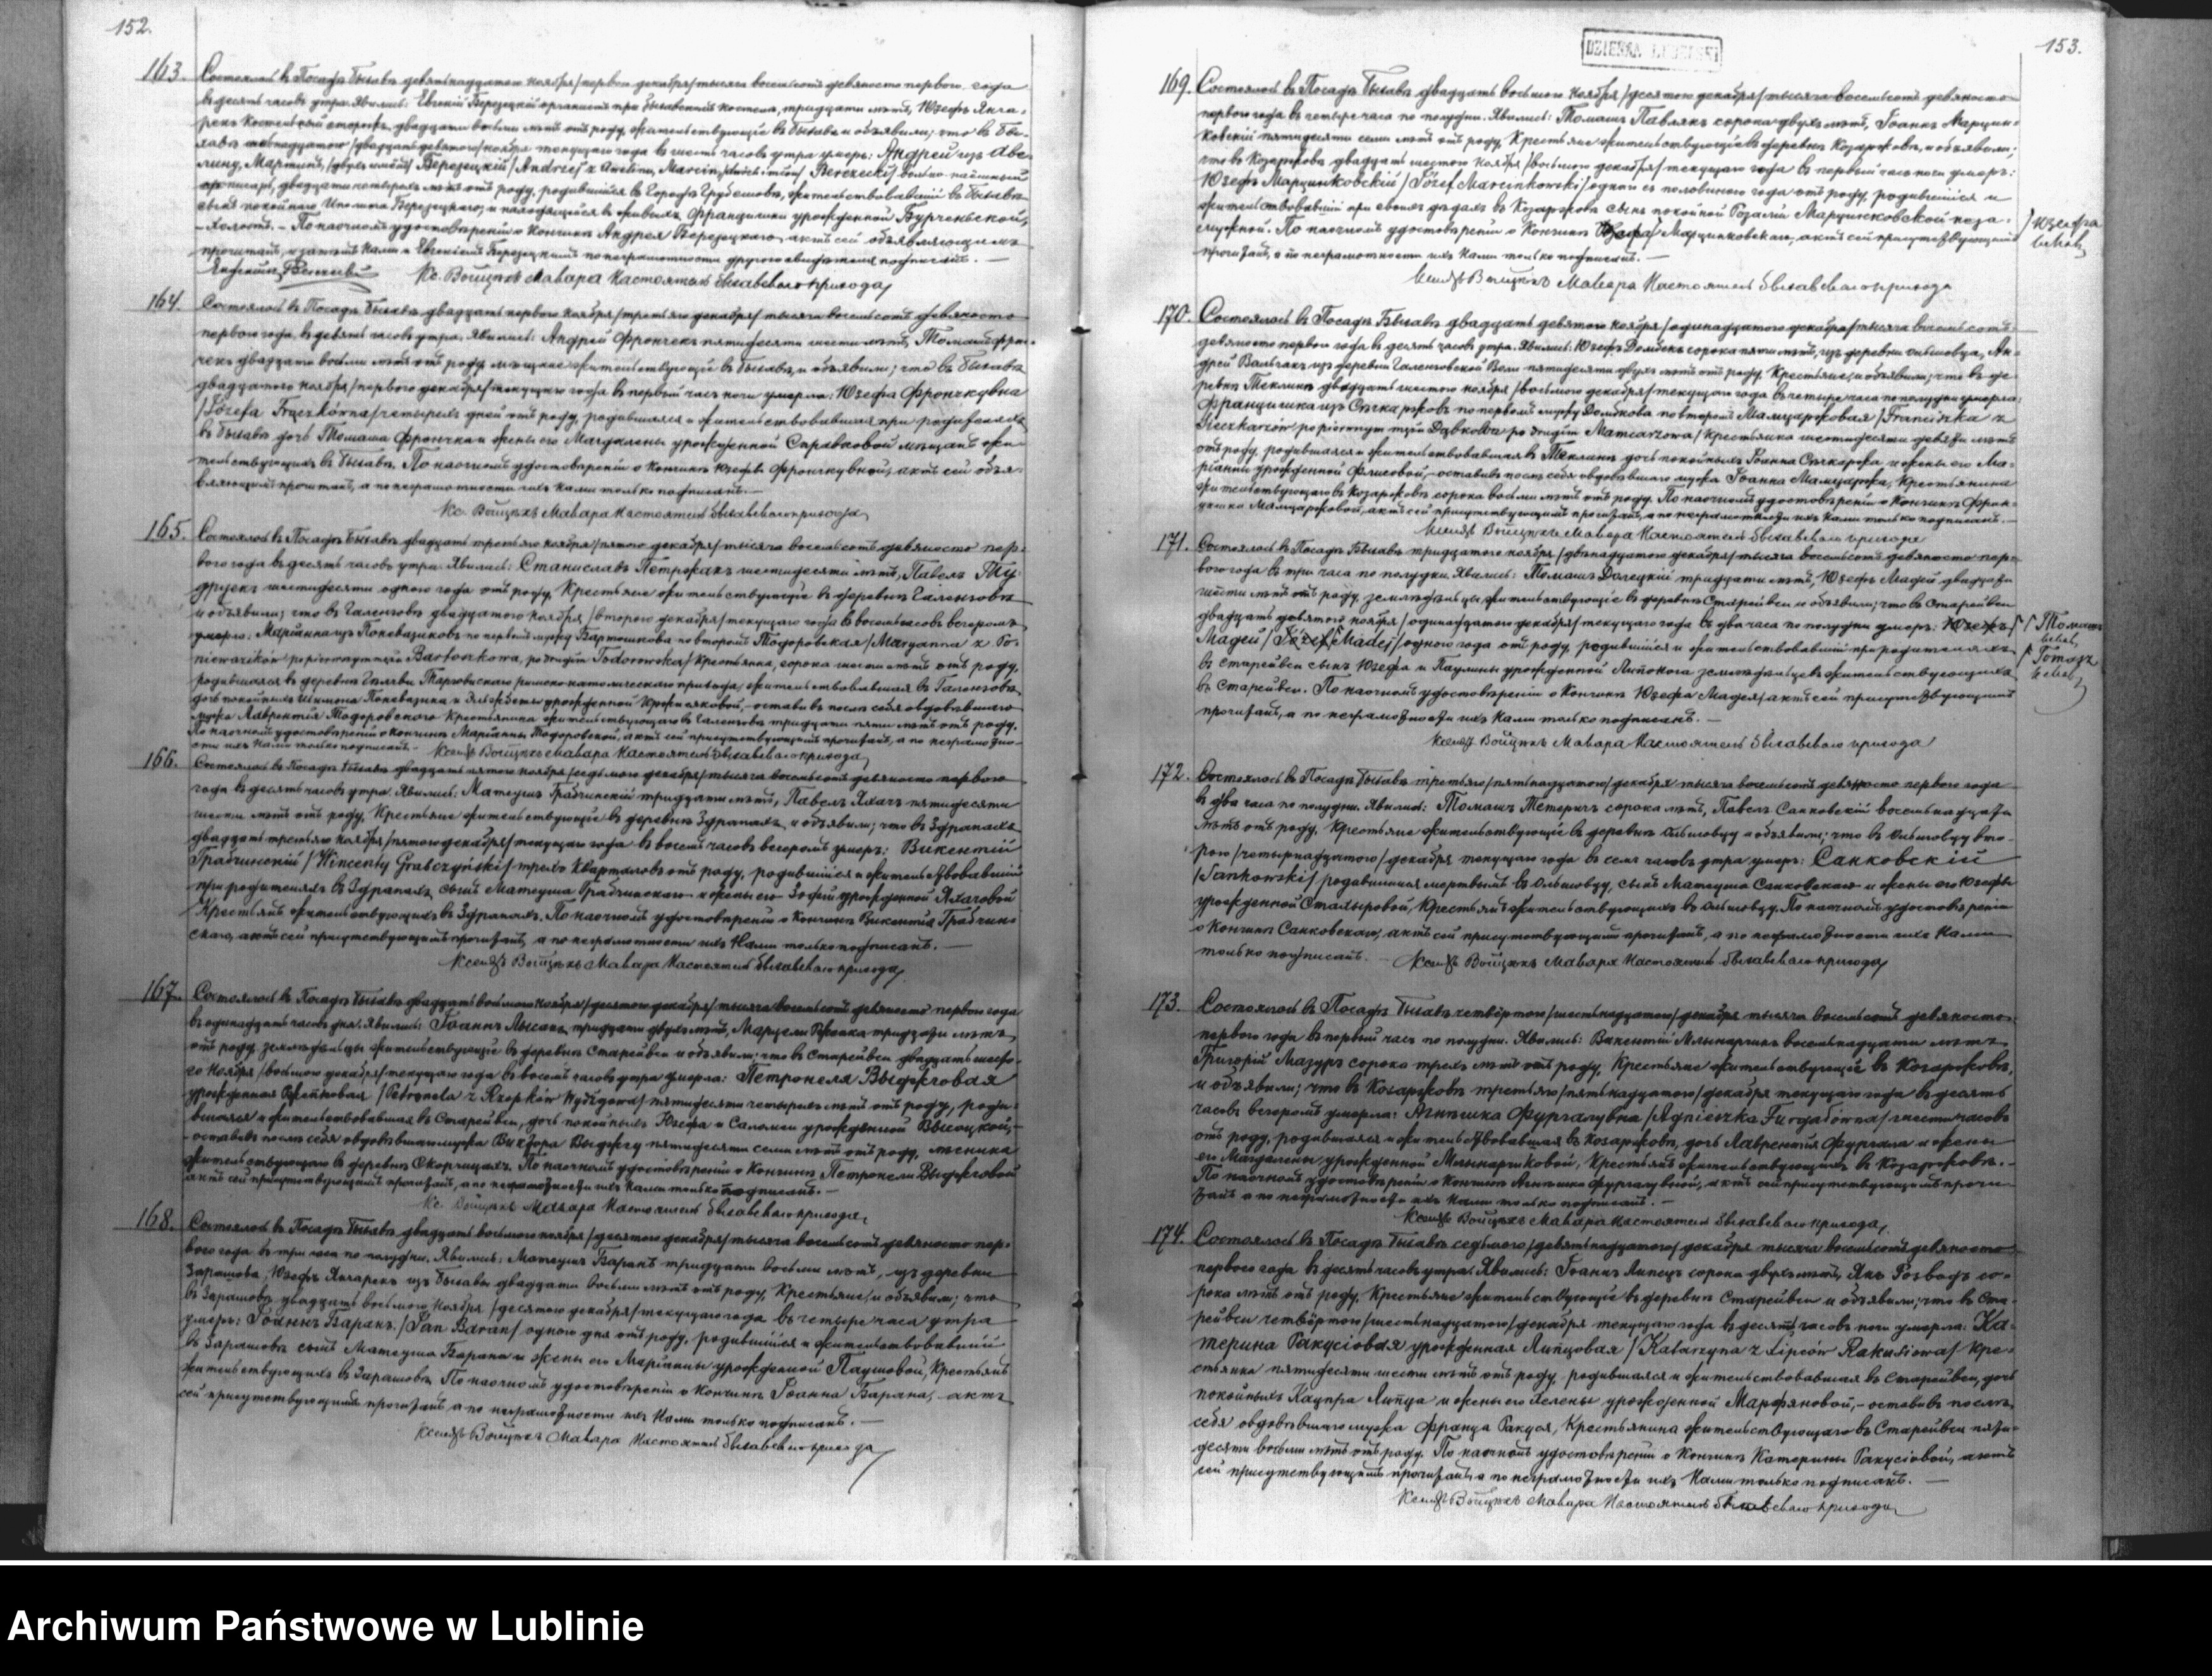 152.
163.
Состоялось въ Посадѣ Бычавѣ девятнадцатого ноября /первого декабря/ тысяча восемьсотъ девяносто первого года
въ десять часовъ утра. Явились: Евгеній Березецкій органистъ при бычавскомъ костелѣ, тридцати лѣтъ, Юзефъ
двадцати восьми лѣтъ отъ роду, жительствующіе въ Бычавѣ и объявили; что въ Бы-
ноября текущаго года въ шесть часовъ утра умеръ: Андрей изъ Аве-
лину, Мартинъ, /двухъ именъ/ Березецкій /Andrzej z Awelinu, Marcin, dwóch imion/ Berezecki/
двадцати четырехъ лѣтъ отъ роду, родившійся въ Городѣ Грубешовѣ, жительствовавшій въ Бычавѣ
сынъ покойнаго Березецкого, и находящейся въ живыхъ Францишки урожденной
Холостъ. По наочномъ удостовѣреніи о кончинѣ Андрея Березецкаго, актъ сей объявляющимъ
прочитанъ, и затѣмъ Нами и Евгеніемъ Березецкимъ по неграмотности другого свидѣтеля подписанъ.
Кс. Войцехъ Мавара Настоятель бычавскаго прихода
164.
Состоялось въ Посадѣ Бычавѣ двадцать первого ноября /третьяго декабря/ тысяча восемьсотъ девяносто
первого года, въ девять часовъ утра. Явились: Андрей Фрончекъ пятидесяти шести лѣтъ, Томашъ Фрон-
чекъ двадцати восьми лѣтъ отъ роду, мѣщане жительствующіе въ Бычавѣ, и объявили; что въ Бычавѣ
двадцатого ноября /первого декабря/ текущаго года въ первый часъ ночи умерла: Юзефа Фрончкувна
/Józefa Frączkówna/ четырехъ дней отъ роду, родившаяся и жительствовавшая при родителяхъ
въ Бычавѣ дочь Томаша Фрончка и жены его Магдалены урожденной мѣщанъ жи-
тельствующихъ въ Бычавѣ. По наочномъ удостовѣреніи о кончинѣ Юзефы Фрончкувной, актъ сей объя-
вляющимъ прочитанъ, а по неграмотности ихъ Нами только подписанъ.
Кс. Войцехъ Мавара Настоятель бычавскаго прихода
165.
Состоялось въ Посадѣ Бычавѣ двадцать третьяго ноября /пятого декабря/ тысяча восемьсотъ девяносто пер-
вого года въ десять часовъ утра. Явились: Станиславъ Петржакъ шестидесяти лѣтъ, Павелъ
шестидесяти одного года отъ роду, Крестьяне жительствующіе въ деревнѣ Галензовѣ
и объявили; что въ Галензовѣ двадцатого ноября /второго декабря/ текущаго года въ восемь часовъ вечеромъ
умерла: Маріанна изъ Поневазиковъ по первому мужу Бартошкова по второмъ Тодоровская /Maryanna z Po-
niewazików po pierwszym mężu Bartoszkowa, po drugim Todorowska/ Крестьянка, сорока шести лѣтъ отъ роду,
родившаяся въ деревнѣ римско-католическаго прихода, жительствовавшая въ Галензовѣ
дочь покойныхъ Шимона Поневазика и Эльжбеты урожденной оставивъ послѣ себя овдовѣвшаго
мужа Лаврентія Тодоровскаго Крестьянина жительствующаго въ Галензовѣ тридцати пяти лѣтъ отъ роду.
По наочномъ удостовѣреніи о кончинѣ Маріанны Тодоровской, актъ сей присутствующимъ прочитанъ, а по неграмотно-
сти ихъ Нами только подписанъ. Ксендзъ Войцехъ Мавара Настоятель бычавскаго прихода
166.
Состоялось въ Посадѣ Бычавѣ двадцать пятого ноября /седьмого декабря/ тысяча восемьсотъ девяносто первого
года въ десять часовъ утра. Явились: Матеушъ Грабчинскій тридцати лѣтъ, Павелъ пятидесяти
лѣтъ отъ роду, Крестьяне жительствующіе въ деревнѣ Здрапахъ, и объявили; что въ Здрапахъ
двадцать третьяго ноября /пятого декабря/ текущаго года въ восемь часовъ вечеромъ умеръ: Викентій
Грабчинскій /Wincenty Grabczyński/ трехъ кварталовъ отъ роду, родившійся и жительствовавшій
при родителяхъ въ Здрапахъ, сынъ Матеуша Грабчинскаго и жены его Зофіи урожденной
Крестьянъ жительствующихъ въ Здрапахъ. По наочномъ удостовѣреніи о кончинѣ Викентія Грабчин-
скаго, актъ сей присутствующимъ прочитанъ, а по неграмотности ихъ Нами только подписанъ.
Ксендзъ Войцехъ Мавара Настоятель бычавскаго прихода
167.
Состоялось въ Посадѣ Бычавѣ двадцать восьмого ноября /десятого декабря/ тысяча восемьсотъ девяносто первого года
въ одинадцать часовъ дня. Явились: Іоаннъ тридцати двухъ лѣтъ, Марцели Ржепка тридцати лѣтъ
отъ роду, земледѣльцы жительствующіе въ деревнѣ Старейвси и объявили; что въ Старейвси двадцать шесто-
го ноября /восьмого декабря/ текущаго года въ восемь часовъ утра умерла: Петронеля Выджговая
урожденная Ржепковая /Petronela z Rzepków Wydżgowa/ пятидесяти четырехъ лѣтъ отъ роду, роди-
вшаяся и жительствовавшая въ Старейвси, дочь покойныхъ Юзефа и Саломеи урожденной Высоцкой,
оставивъ послѣ себя овдовѣвшаго мужа Виктора Выджгу пятидесяти семи лѣтъ отъ роду,
жительствующаго въ деревнѣ Скорчицахъ. По наочномъ удостовѣреніи о кончинѣ Петронели Выджговой
актъ сей присутствующимъ прочитанъ, а по неграмотности ихъ Нами только подписанъ.
Кс. Войцехъ Мавара Настоятель бычавскаго прихода
168.
Состоялось въ Посадѣ Бычавѣ двадцать восьмого ноября /десятого декабря/ тысяча восемьсотъ девяносто пер-
вого года въ три часа по полудни. Явились: Матеушъ Баранъ тридцати восьми лѣтъ, изъ деревни
Зарашова, Юзефъ изъ Бычавы двадцати восьми лѣтъ отъ роду, Крестьяне, и объявили; что
въ Зарашовѣ двадцать восьмого ноября /десятого декабря/ текущаго года въ четыре часа утра
умеръ: Іоаннъ Баранъ /Jan Baran/ одного дня отъ роду, родившійся и жительствовавшій
въ Зарашовѣ сынъ Матеуша Барана и жены его Маріанны урожденной Крестьянъ
жительствующихъ въ Зарашовѣ. По наочномъ удостовѣреніи о кончинѣ Іоанна Барана, актъ
сей присутствующимъ прочитанъ, а по неграмотности ихъ Нами только подписанъ.
Ксендзъ Войцехъ Мавара Настоятель бычавскаго прихода
153.
169.
Состоялось въ Посадѣ Бычавѣ двадцать восьмого ноября /десятого декабря/ тысяча восемьсотъ девяносто
первого года въ четыре часа по полудни. Явились: Томашъ Павлякъ сорока двухъ лѣтъ, Іоаннъ Марцин-
ковскій пятидесяти семи лѣтъ отъ роду, Крестьяне жительствующіе въ деревнѣ Козаржовѣ, и объявили;
что въ Козаржовѣ двадцать шестого ноября /восьмого декабря/ текущаго года въ первый часъ ночи умеръ:
Юзефъ Марцинковскій /Józef Marcinkowski/ одного съ половиною года отъ роду, родившійся и
жительствовавшій при своихъ дѣдахъ въ Козаржовѣ сынъ покойной Розаліи Марцинковской неза-
мужной. По наочномъ удостовѣреніи о кончинѣ Марцинковскаго, актъ сей присутствующимъ
прочитанъ, а по неграмотности ихъ Нами только подписанъ.
/ Юзефа
Ксендзъ Войцехъ Мавара Настоятель бычавскаго прихода
170.
Состоялось въ Посадѣ Бычавѣ двадцать девятого ноября /одинадцатого декабря/ тысяча восемьсотъ
девяносто первого года въ десять часовъ утра. Явились: Юзефъ Домбекъ сорока пяти лѣтъ, изъ деревни Ольшовца, Ан-
дрей Вальчакъ изъ деревни Галензовской Воли пятидесяти двухъ лѣтъ отъ роду, Крестьяне, и объявили; что въ де-
ревнѣ Теклинѣ двадцать шестого ноября /восьмого декабря/ текущаго года въ четыре часа по полудни умерла:
Францишка изъ Сѣчкаржовъ по первомъ мужу Домбкова по второмъ Мамцаржовая /Franciszka z
Sieczkarzów po pierwszym mężu Dąbkowa po drugim Mamcarzowa/ Крестьянка шестидесяти девяти лѣтъ
отъ роду, родившаяся и жительствовавшая въ Теклинѣ дочь покойныхъ Іоанна Сѣчкаржа и жены его Ма-
ріанны урожденной оставивъ послѣ себя овдовѣвшаго мужа Іоанна Мамцаржа, Крестьянина
жительствующаго въ Козаржовѣ сорока восьми лѣтъ отъ роду. По наочномъ удостовѣреніи о кончинѣ Фран-
цишки Мамцаржовой, актъ сей присутствующимъ прочитанъ, а по неграмотности ихъ Нами только подписанъ.
Ксендзъ Войцехъ Мавара Настоятель бычавскаго прихода
171.
Состоялось въ Посадѣ Бычавѣ тридцатого ноября /двѣнадцатого декабря/ тысяча восемьсотъ девяносто пер-
вого года въ три часа по полудни. Явились: Томашъ Долецкій тридцати лѣтъ, Юзефъ Мадей двадцати
шести лѣтъ отъ роду, земледѣльцы жительствующіе въ деревнѣ Старейвси и объявили; что въ Старейвси
двадцать девятого ноября /одинадцатого декабря/ текущаго года въ два часа по полудни умеръ: Юзефъ
Мадей /Józef Madej/ одного года отъ роду, родившійся и жительствовавшій при родителяхъ
въ Старейвси сынъ Юзефа и Паулины урожденной земледѣльцевъ жительствующихъ
въ Старейвси. По наочномъ удостовѣреніи о кончинѣ Юзефа Мадея, актъ сей присутствующимъ
прочитанъ, а по неграмотности ихъ Нами только подписанъ.
/ Томашъ
/ Tomasz
Ксендзъ Войцехъ Мавара Настоятель бычавскаго прихода
172.
Состоялось въ Посадѣ Бычавѣ третьяго /пятнадцатого/ декабря тысяча восемьсотъ девяносто первого года
въ два часа по полудни. Явились: Томашъ Тетеричъ сорока лѣтъ, Павелъ Санковскій восемьнадцати
лѣтъ отъ роду, Крестьяне жительствующіе въ деревнѣ Ольшовцу и объявили; что въ Ольшовцу вто-
рого /четырнадцатого/ декабря текущаго года въ семь часовъ утра умеръ: Санковскій
/Sankowski/ родившійся мертвымъ въ Ольшовцу, сынъ Матеуша Санковскаго и жены его Юзефы
урожденной Крестьянъ жительствующихъ въ Ольшовцу. По наочномъ удостовѣреніи
о кончинѣ Санковскаго, актъ сей присутствующимъ прочитанъ, а по неграмотности ихъ Нами
только подписанъ. Ксендзъ Войцехъ Мавара Настоятель бычавскаго прихода
173.
Состоялось въ Посадѣ Бычавѣ четвёртого /шестнадцатого/ декабря тысяча восемьсотъ девяносто
первого года въ первый часъ по полудни. Явились: Викентій Млынарчикъ восемьнадцати лѣтъ
Григорій Мазуръ сорока трехъ лѣтъ отъ роду, Крестьяне жительствующіе въ Козаржовѣ,
и объявили; что въ Козаржовѣ третьяго /пятнадцатого/ декабря текущаго года въ десять
часовъ вечеромъ умерла: Агнѣшка Фургалувна /Agnieszka Furgałówna/ шести часовъ
отъ роду, родившаяся и жительствовавшая въ Козаржовѣ, дочь Лаврентія Фургала и жены
его Магдалены урожденной Млынарчиковой, Крестьянъ жительствующихъ въ Козаржовѣ.
По наочномъ удостовѣреніи о кончинѣ Агнѣшки Фургалувной, актъ сей присутствующимъ прочи-
танъ а по неграмотности ихъ Нами только подписанъ.
Ксендзъ Войцехъ Мавара Настоятель бычавскаго прихода
174.
Состоялось въ Посадѣ Бычавѣ седьмого /девятнадцатого/ декабря тысяча восемьсотъ девяносто
первого года въ десять часовъ утра. Явились: Іоаннъ Липецъ сорока двухъ лѣтъ, Янъ Розвадъ со-
рока лѣтъ отъ роду, Крестьяне жительствующіе въ деревнѣ Старейвси и объявили; что въ Ста-
рейвси четвёртого /шестнадцатого/ декабря текущаго года въ десять часовъ ночи умерла: Ка-
терина Ракусіовая урожденная Липцовая /Katarzyna z Lipców Rakusiowa/ Кре-
стьянка пятидесяти шести лѣтъ отъ роду, родившаяся и жительствовавшая въ Старейвси, дочь
покойныхъ Кацпра Липца и жены его Хелены урожденной оставивъ послѣ
себя овдовѣвшаго мужа Франца Ракуся, Крестьянина жительствующаго въ Старейвси пяти-
десяти восьми лѣтъ отъ роду. По наочномъ удостовѣреніи о кончинѣ Катерины Ракусіовой, актъ
сей присутствующимъ прочитанъ, а по неграмотности ихъ Нами только подписанъ.
Ксендзъ Войцехъ Мавара Настоятель бычавскаго прихода
Archiwum Państwowe w Lublinie